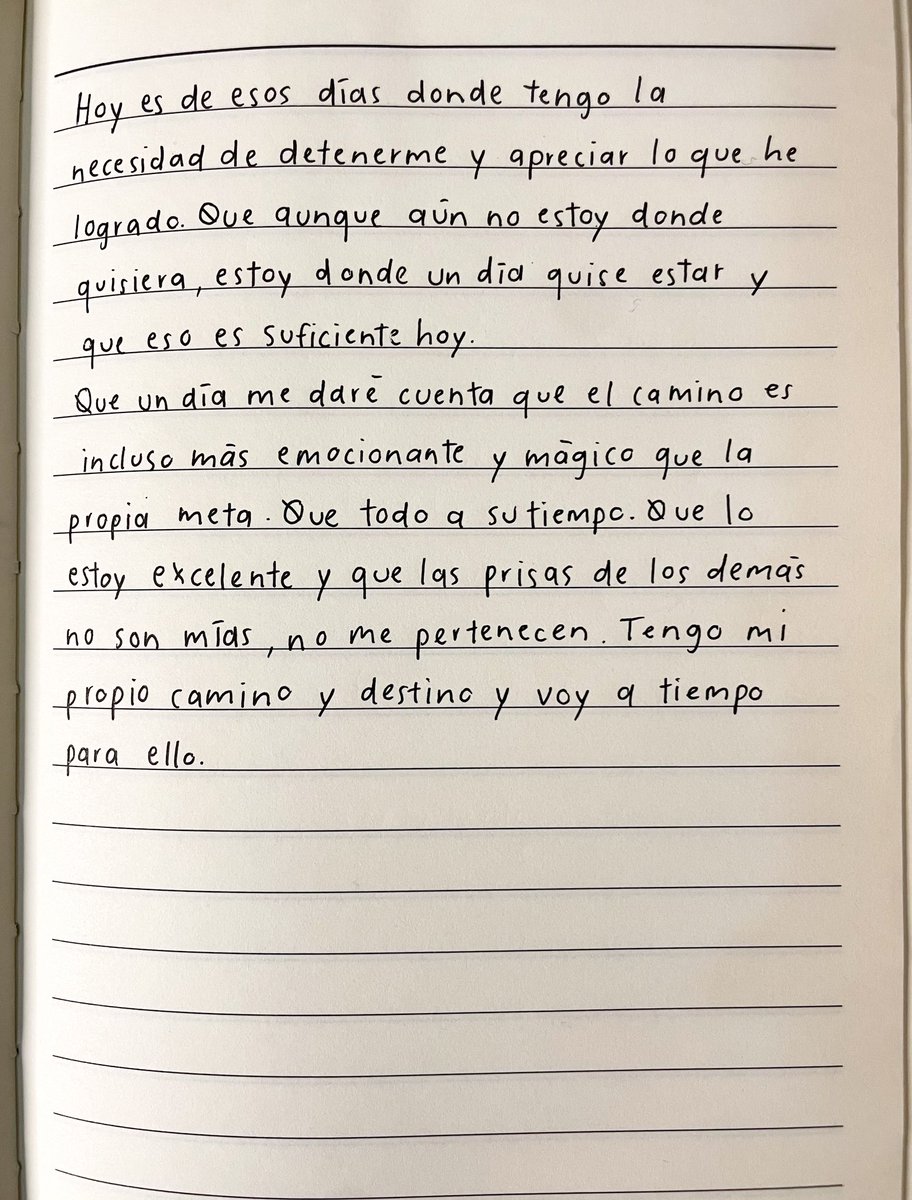 Hoy es de esos días donde tengo la
necesidad de detenerme y apreciar lo que he
logrado. Que aunque aún no estoy donde
quisiera, estoy donde un día quise estar y
que eso es suficiente hoy.
Que un día me daré cuenta que el camino es
incluso más emocionante y mágico que la
propia meta. Que todo a su tiempo. Que lo
estoy excelente y que las prisas de los demás
no son mías, no me pertenecen. Tengo mi
propio camino y destino y voy a tiempo
para ello.